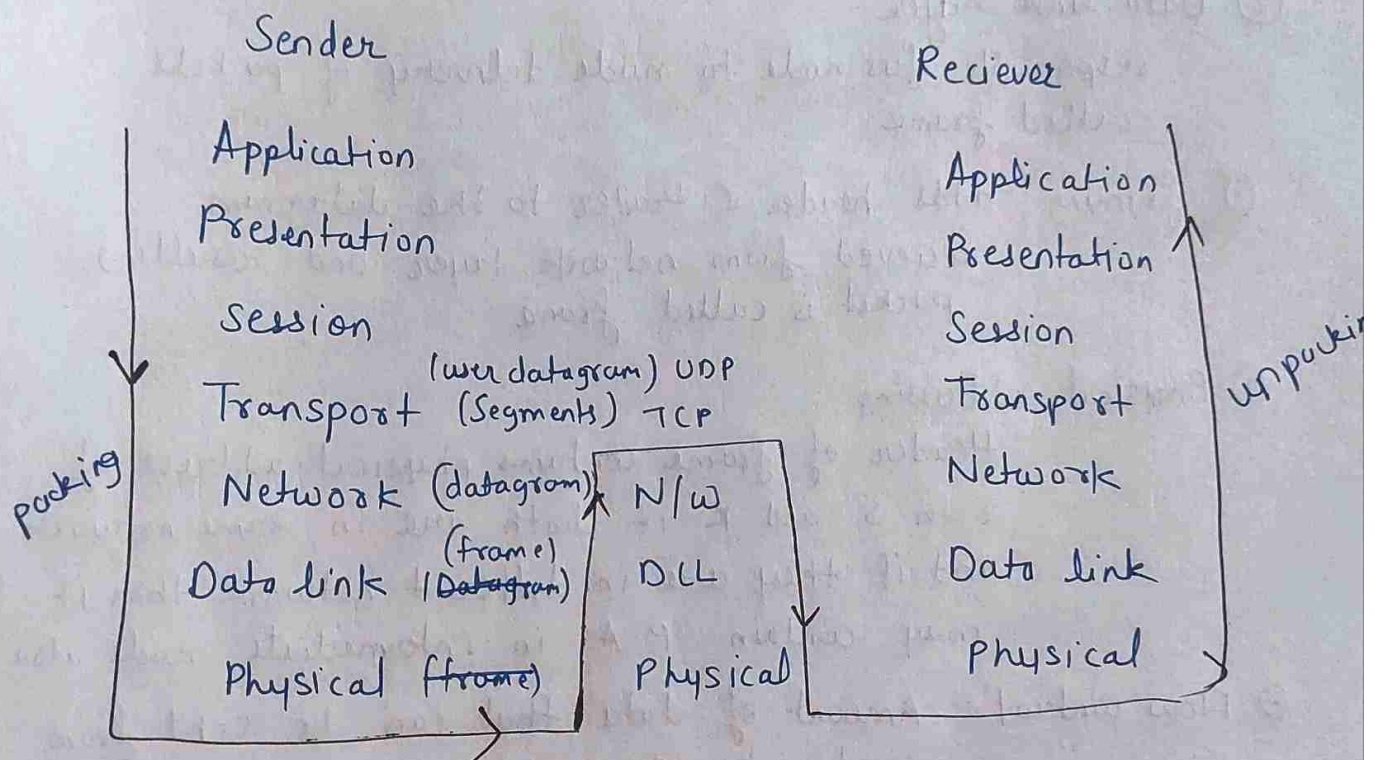 Sender
Application
Presentation
Session
(user datagram) UDP
Transport (Segments) TCP
Network (datagram)
(frame)
Data link (Datagram)
Physical (frame)
packing
N/W
DLL
Physical
Reciever
Application
Presentation
Session
Transport
Network
Data link
Physical
unpackin